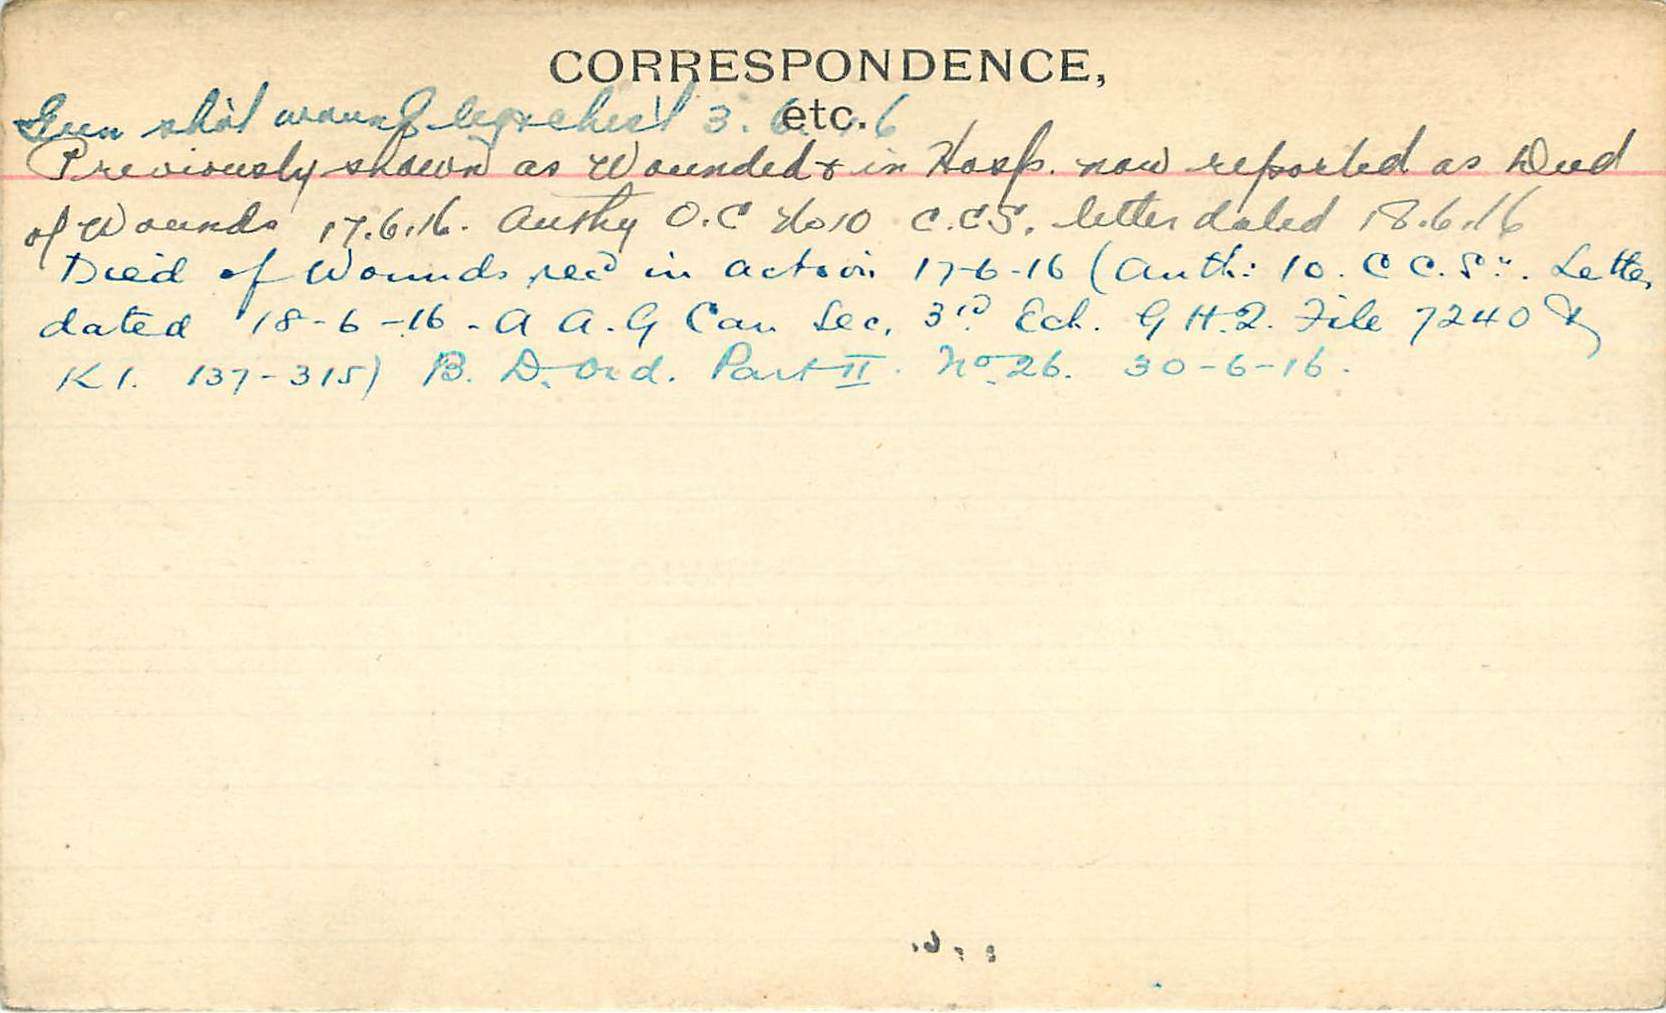 CORRESPONDENCE,
etc.
Gun shot wound leg & chest 3. 6. 16
Previously shown as Wounded & in Hosp. now reported as Died
of Wounds 17.6.16. Authy O.C No 10 C.C.S. letter dated 18.6.16
Died of Wounds rec'd in action 17-6-16 (Auth: 10. C C. S". Letter
dated 18-6-16 - A A. G Can Sec. 3rd Ech. G H. Q. File 7240
K 1. 137-315) B. D. Ord. Part II. No 26. 30-6-16.